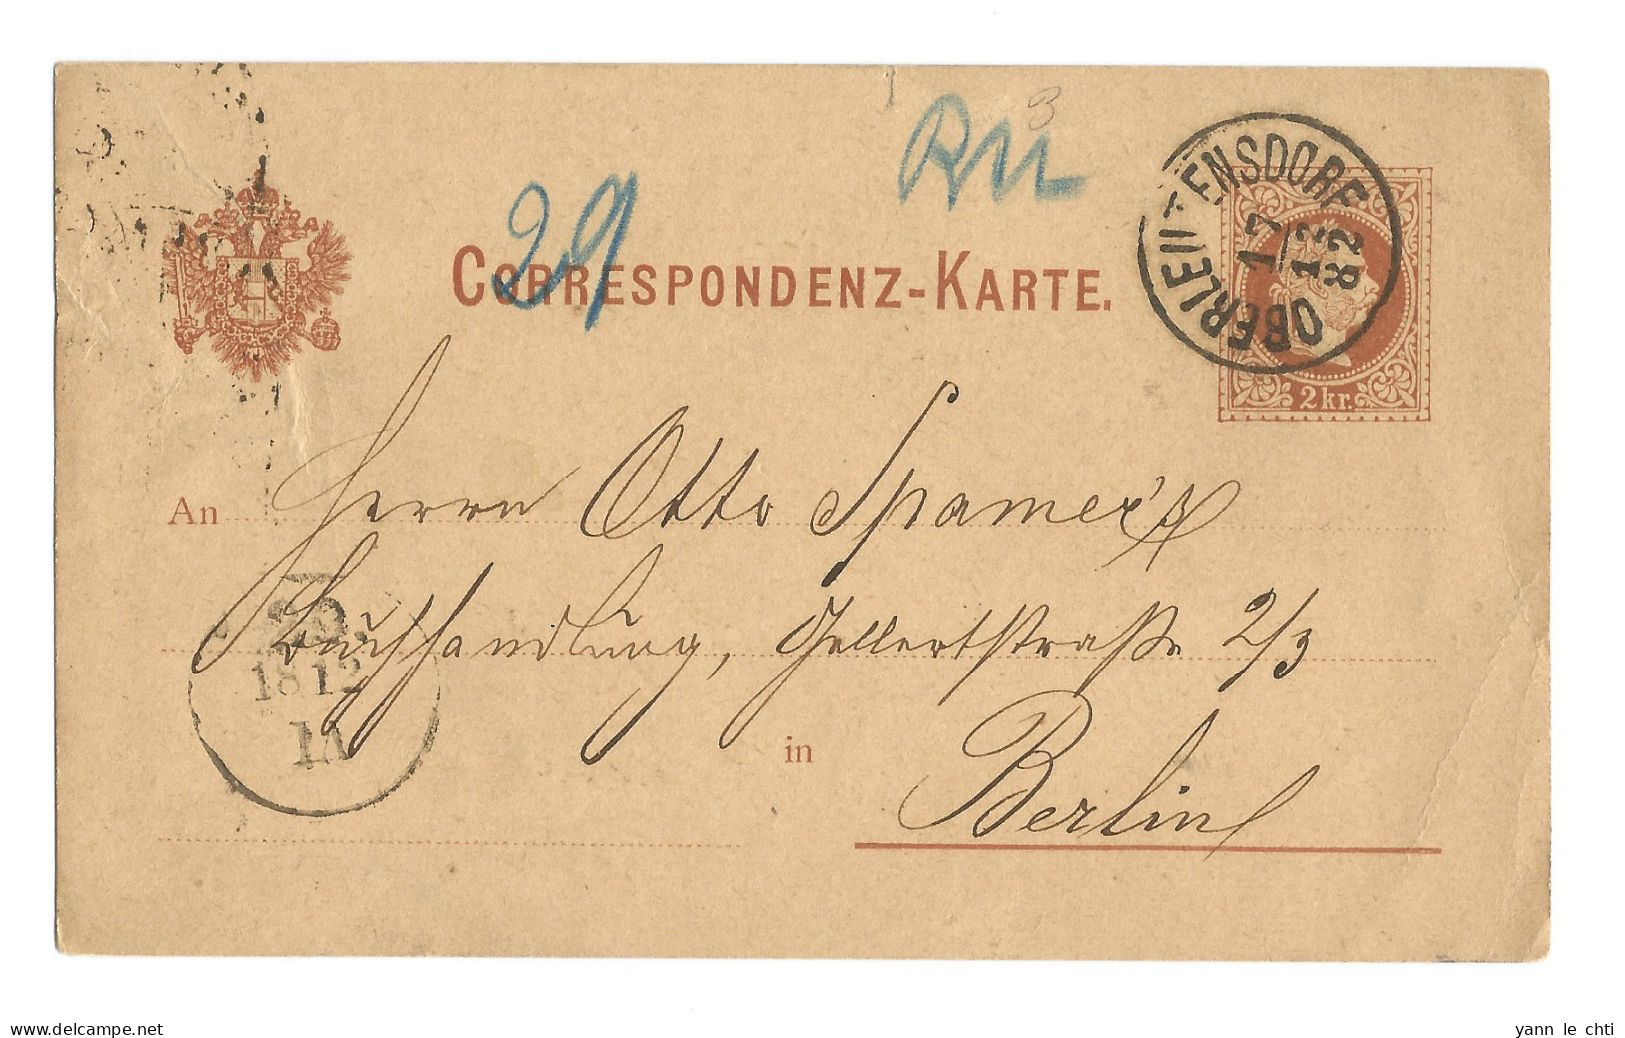 29
RU
3
CORRESPONDENZ-KARTE.
OBERLEUTENSDORF
17
12
82
2 kr.
An Herrn Otto Spamer's
Buchhandlung, Gellertstraße 2/3
in Berlin
18 12
www.delcampe.net
yann le chti